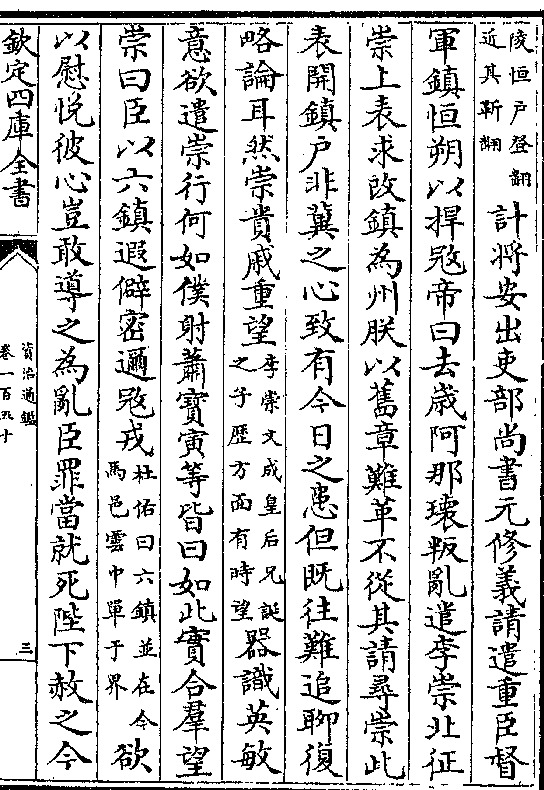 陵恒户登翻
近其靳翻
計將安出吏部尚書元修義請遣重臣督
軍鎮恒朔以捍冦帝曰去歲阿那瓌叛亂遣李崇北征
崇上表求改鎮為州朕以舊章難革不從其請尋崇此
表開鎮户非冀之心致有今日之患但既往難追聊復
略論耳然崇貴戚重望
李崇文成皇后兄誕
之子歴方面有時望
器識英敏
意欲遣崇行何如僕射蕭寶寅等皆曰如此實合羣望
崇曰臣以六鎮遐僻密邇冦戎
杜佑曰六鎮並在今
馬邑雲中單于界
欲
以慰悦彼心豈敢導之為亂臣罪當就死陛下赦之今
欽定四庫全書
資治通鑑
卷一百五十
三